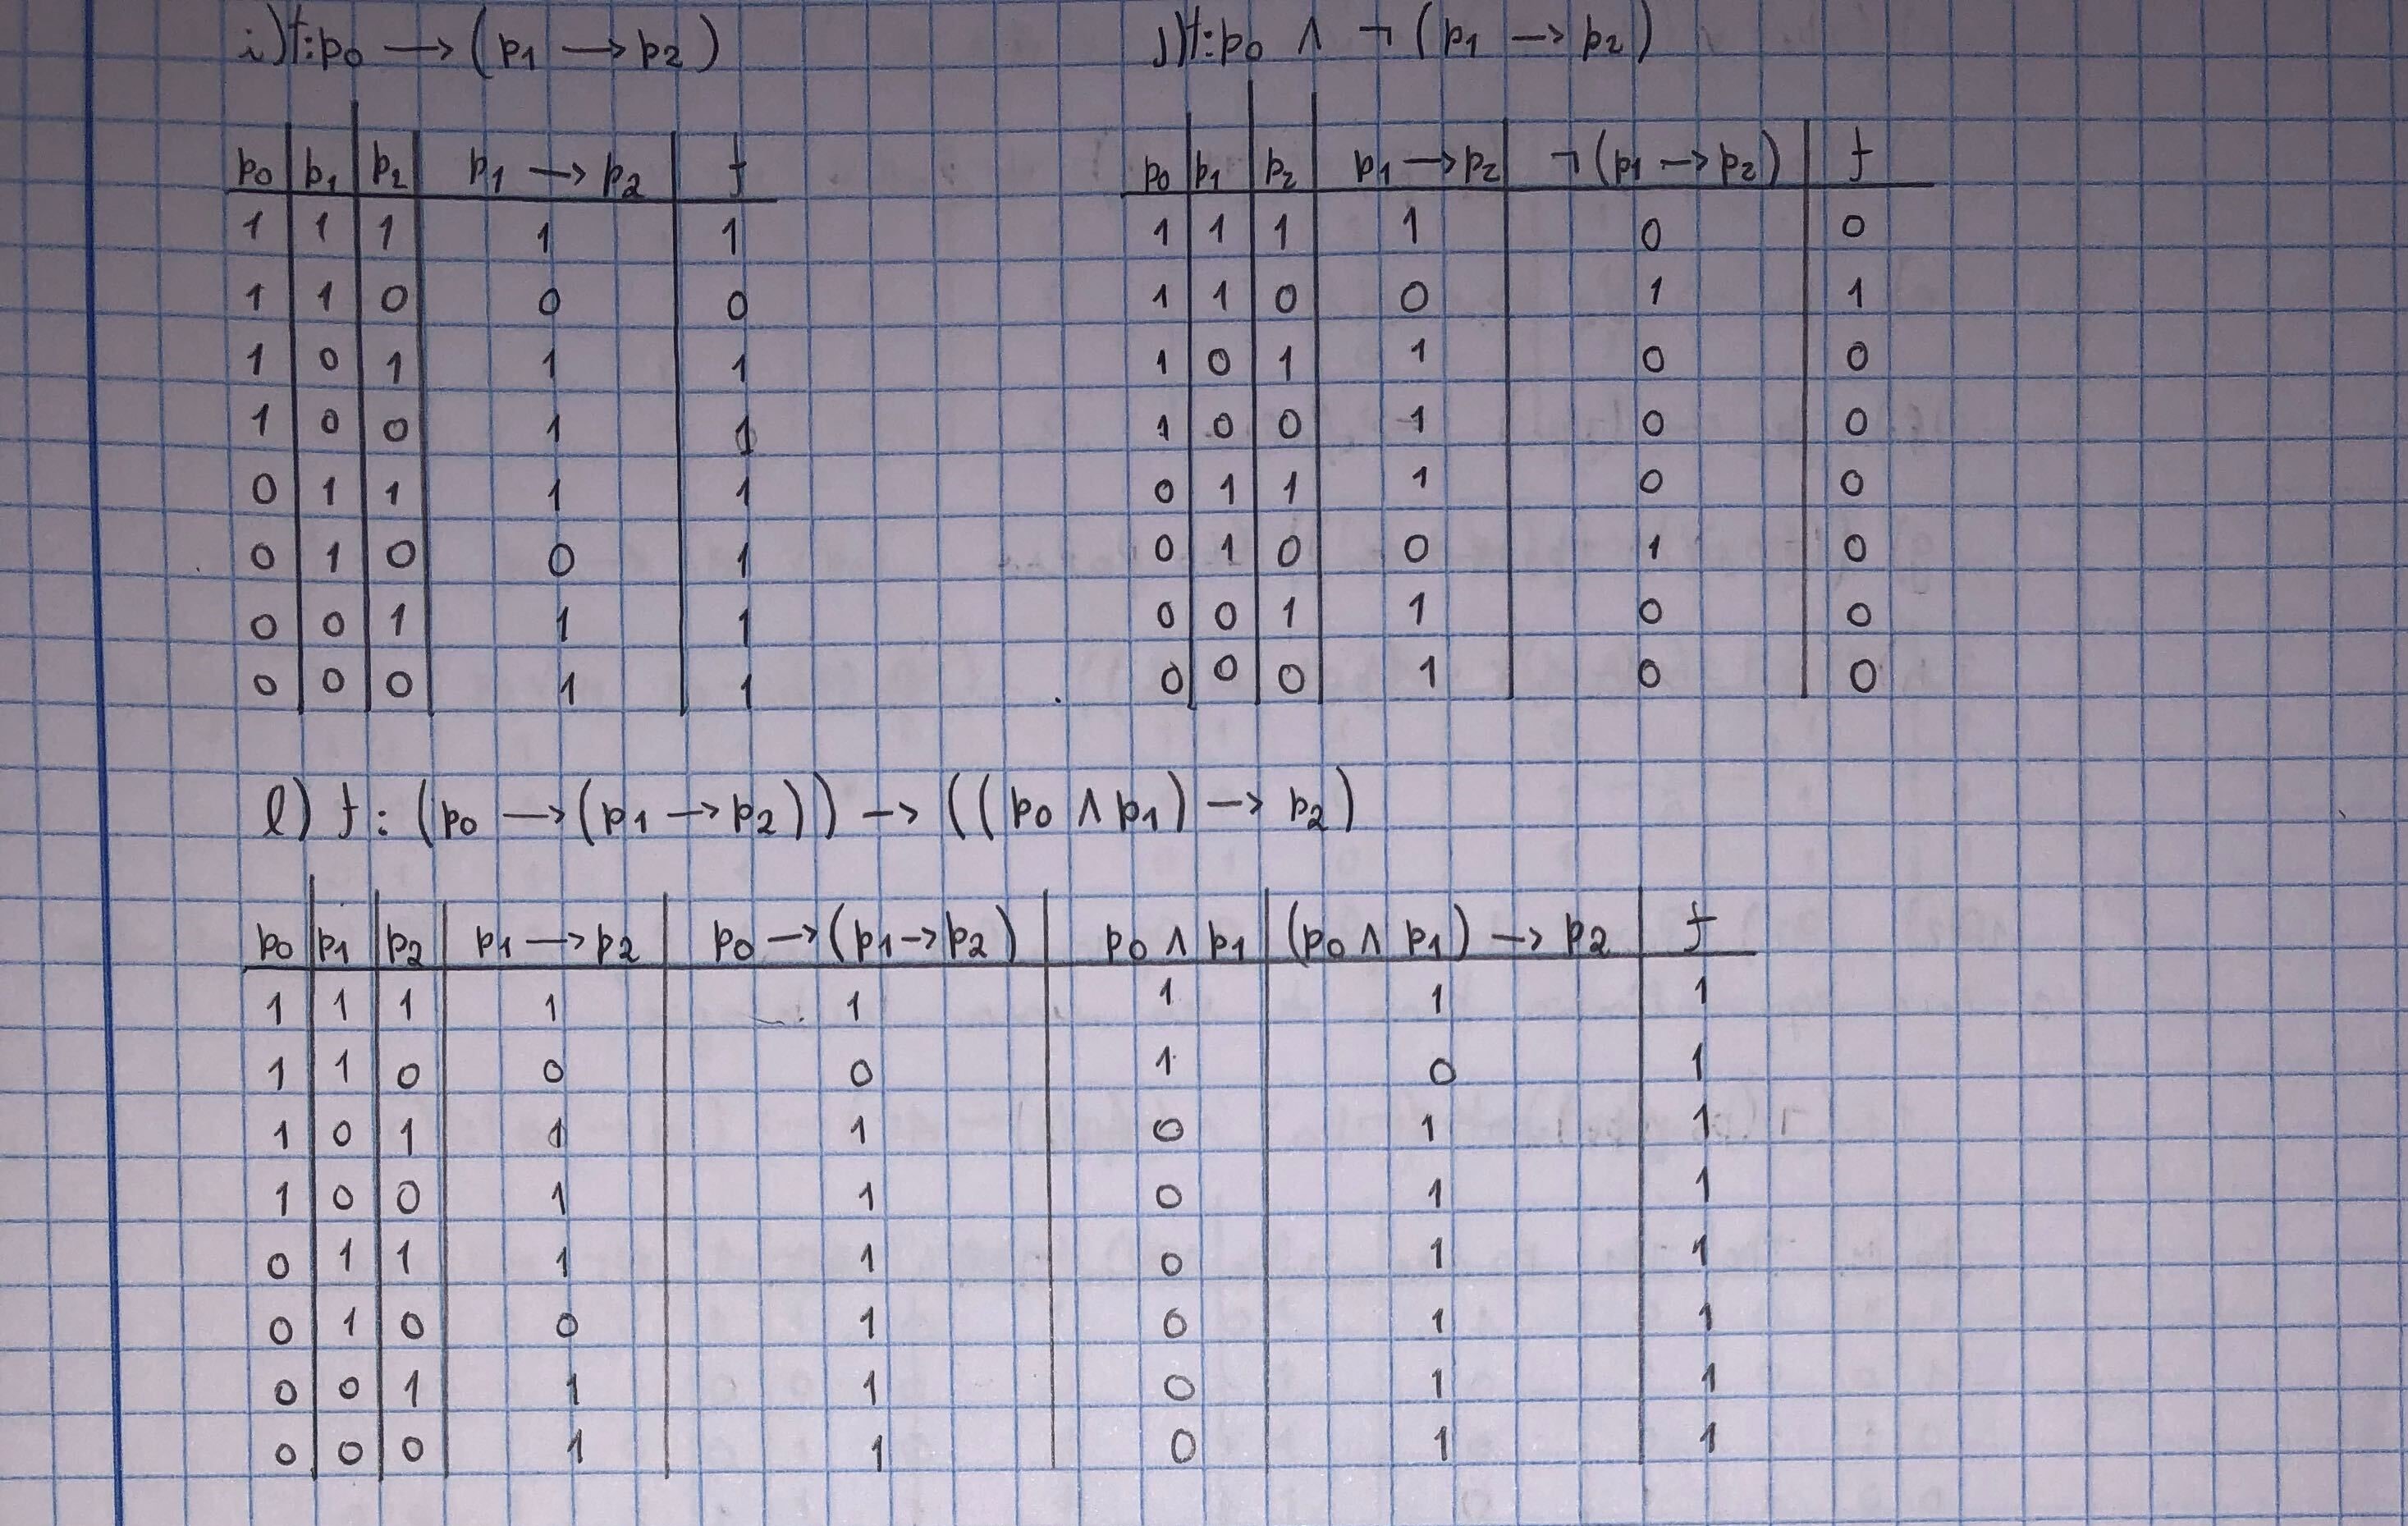 i) f: p0 → (p1 → p2)
p0 p1 p2 p1 → p2 f
1 1 1 1 1
1 1 0 0 0
1 0 1 1 1
1 0 0 1 1
0 1 1 1 1
0 1 0 0 1
0 0 1 1 1
0 0 0 1 1
j) f: p0 ∧ ¬ (p1 → p2)
p0 p1 p2 p1 → p2 ¬ (p1 → p2) f
1 1 1 1 0 0
1 1 0 0 1 1
1 0 1 1 0 0
1 0 0 1 0 0
0 1 1 1 0 0
0 1 0 0 1 0
0 0 1 1 0 0
0 0 0 1 0 0
l) f: (p0 → (p1 → p2)) → ((p0 ∧ p1) → p2)
p0 p1 p2 p1 → p2 p0 → (p1 → p2) p0 ∧ p1 (p0 ∧ p1) → p2 f
1 1 1 1 1 1 1 1
1 1 0 0 0 1 0 1
1 0 1 1 1 0 1 1
1 0 0 1 1 0 1 1
0 1 1 1 1 0 1 1
0 1 0 0 1 0 1 1
0 0 1 1 1 0 1 1
0 0 0 1 1 0 1 1